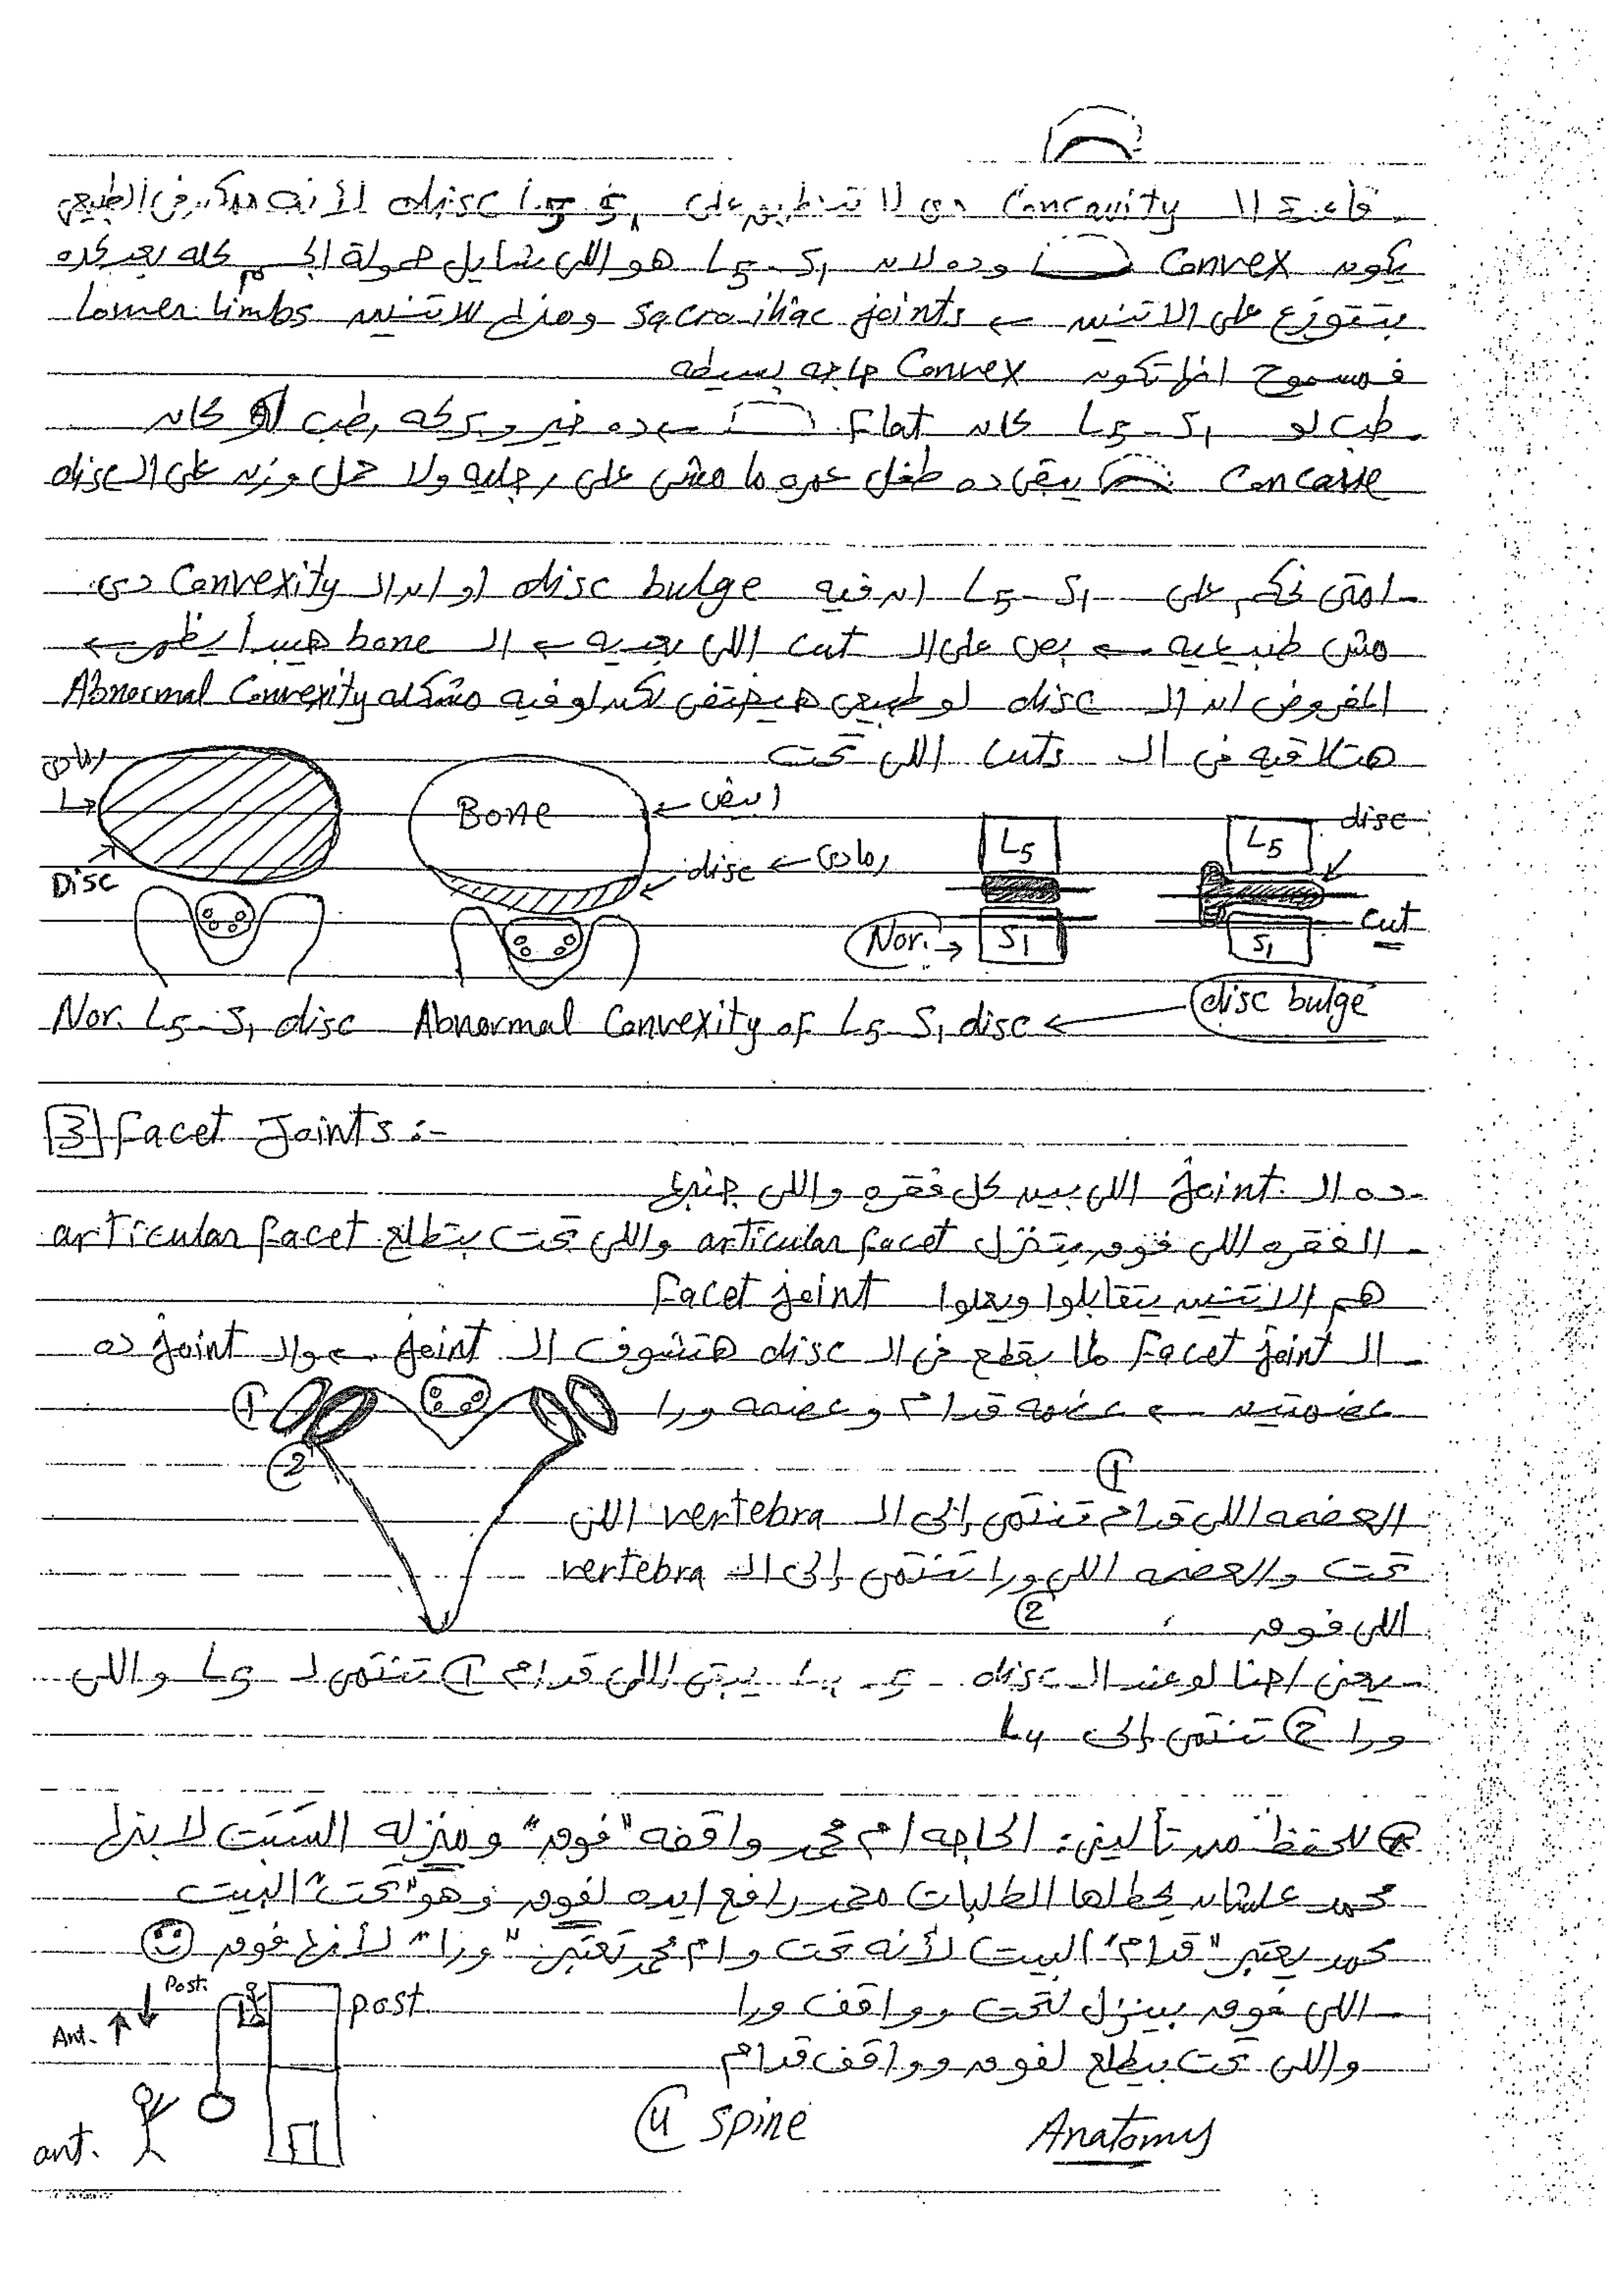 قاعدة الـ Concavity دى لا تنطبق على disc L5-S1 لأنه ممكن فى الطبيعى
يكون Convex وده لان L5-S1 هو اللى شايل حمولة الجسم كله بعد كده
بتتوزع على الاتنين ← Sacro iliac joints ومنهم للاتنين Lower limbs
فمسموح انها تكون Convex حاجه بسيطه
- طب لو L5-S1 كان Flat ← ده خير وبركه, طب لو كان
Concave يبقى ده طفل عمره ما مشى على رجليه ولا حمل وزن على الـ disc
- امتى نحكم على L5-S1 ان فيه disc bulge او ان الـ Convexity دى
مش طبيعيه ← بص على الـ cut اللى بعديه ← الـ bone هيبدأ يظهر ←
المفروض ان الـ disc لو طبيعى هيختفى لكن لو فيه مشكله Abnormal Convexity
هتلاقيه فى الـ cuts اللى تحت
رمادى
Disc
Bone
ابيض
disc ← رمادى
L5
S1
Nor. →
L5
S1
disc
cut
Nor. L5-S1 disc
Abnormal Convexity of L5-S1 disc ←
disc bulge
3 Facet Joints :-
- ده الـ joint اللى بين كل فقره واللى جنبها
- الفقره اللى فوق بتنزل articular facet واللى تحت بتطلع articular facet
هم الاتنين يتقابلوا ويعملوا Facet joint
- الـ Facet joint لما بقطع فى الـ disc هتشوف الـ joint ← والـ joint ده
عضمتين ← عضمه قدام وعضمه ورا
1
2
1
العضمه اللى قدام تنتمى إلى الـ vertebra اللى
تحت والعضمه اللى ورا تنتمى إلى الـ vertebra
2
اللى فوق
- يعنى احنا لو عند الـ disc L4-5 يبقى اللى قدام 1 تنتمى لـ L5 واللى
ورا 2 تنتمى إلى L4
للحفظ من تأليفى: الحاجه ام محمد واقفه "فوق" ومنزله السَبَت لابنها
محمد علشان يحطلها الطلبات محمد رافع ايده لفوق وهو "تحت" البيت
محمد يعتبر "قدام" البيت لأنه تحت وام محمد تعتبر "ورا" لأنها فوق
- اللى فوق بينزل لتحت وواقف ورا
واللى تحت بيطلع لفوق وواقف قدام
Post.
Ant.
post
ant.
4 Spine
Anatomy